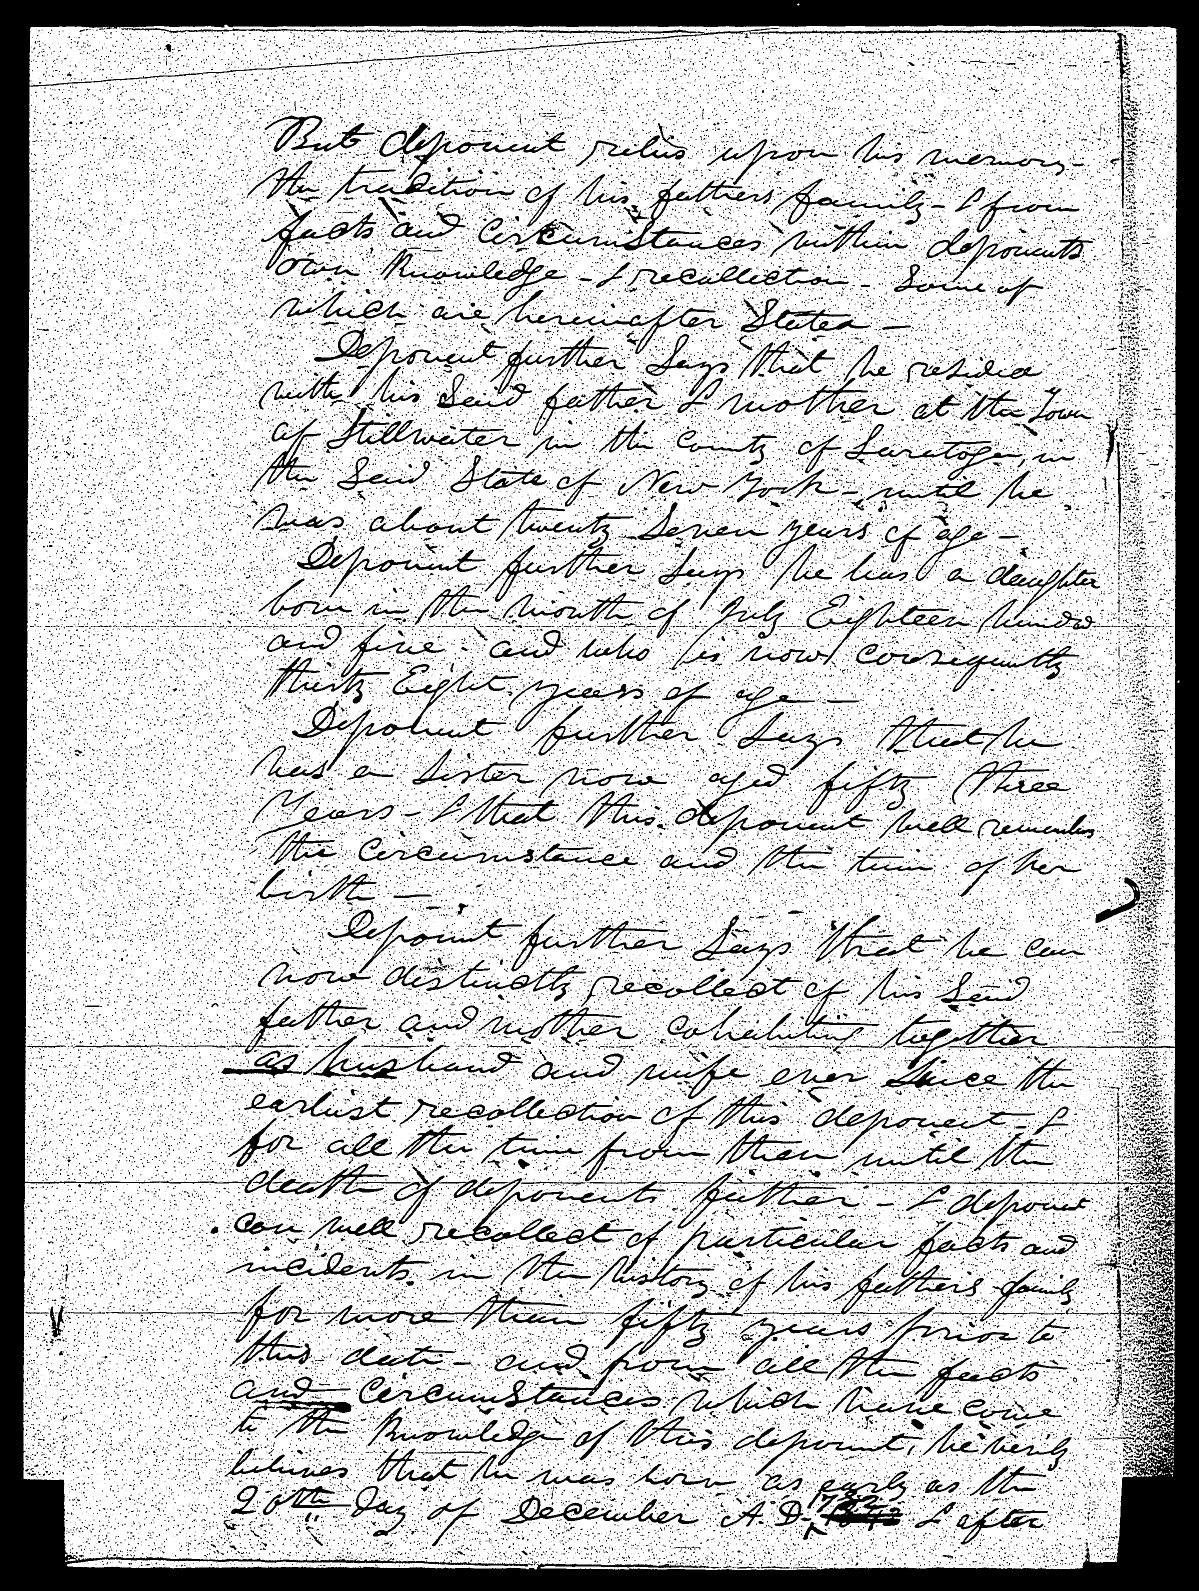 But deponent relies upon his memory -
the tradition of his fathers family - & from
facts and Circumstances within deponents
own Knowledge - & recollection - Some of
which are hereinafter Stated -
Deponent further Says that he resided
with his Said father & mother at the Town
of Stillwater in the County of Saratoga, in
the Said State of New York - until he
was about twenty Seven years of age -
Deponent further Says he has a daughter
born in the month of July Eighteen hundred
and five - and who is now consequently
thirty Eight years of age -
Deponent further Says that he
has a Sister now aged fifty three
Years - & that this deponent well remembers
the Circumstance and the time of her
birth -
Deponent further Says that he can
now distinctly recollect of his Said
father and mother cohabiting together
as husband and wife ever Since the
earliest recollection of this deponent - &
for all the time from then until the
death of deponents father - & deponent
can well recollect of particular facts and
incidents in the history of his fathers family
for more than fifty years prior to
this date - and from all the facts
and Circumstances which have come
to the Knowledge of this deponent, he verily
believes that he was born as early as the
20th day of December A.D. 1782 & after